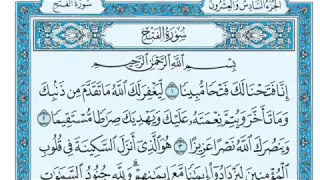 الجزء السادس والعشرون
سورة الفتح
سُورَةُ الفَتْحِ
بِسْمِ اللَّهِ الرَّحْمَٰنِ الرَّحِيمِ
إِنَّا فَتَحْنَا لَكَ فَتْحًا مُّبِينًا ۝١ لِّيَغْفِرَ لَكَ اللَّهُ مَا تَقَدَّمَ مِن ذَنۢبِكَ
وَمَا تَأَخَّرَ وَيُتِمَّ نِعْمَتَهُ عَلَيْكَ وَيَهْدِيَكَ صِرَاطًا مُّسْتَقِيمًا ۝٢
وَيَنصُرَكَ اللَّهُ نَصْرًا عَزِيزًا ۝٣ هُوَ الَّذِي أَنزَلَ السَّكِينَةَ فِي قُلُوبِ
الْمُؤْمِنِينَ لِيَزْدَادُوا إِيمَانًا مَّعَ إِيمَانِهِمْ ۗ وَلِلَّهِ جُنُودُ السَّمَاوَاتِ